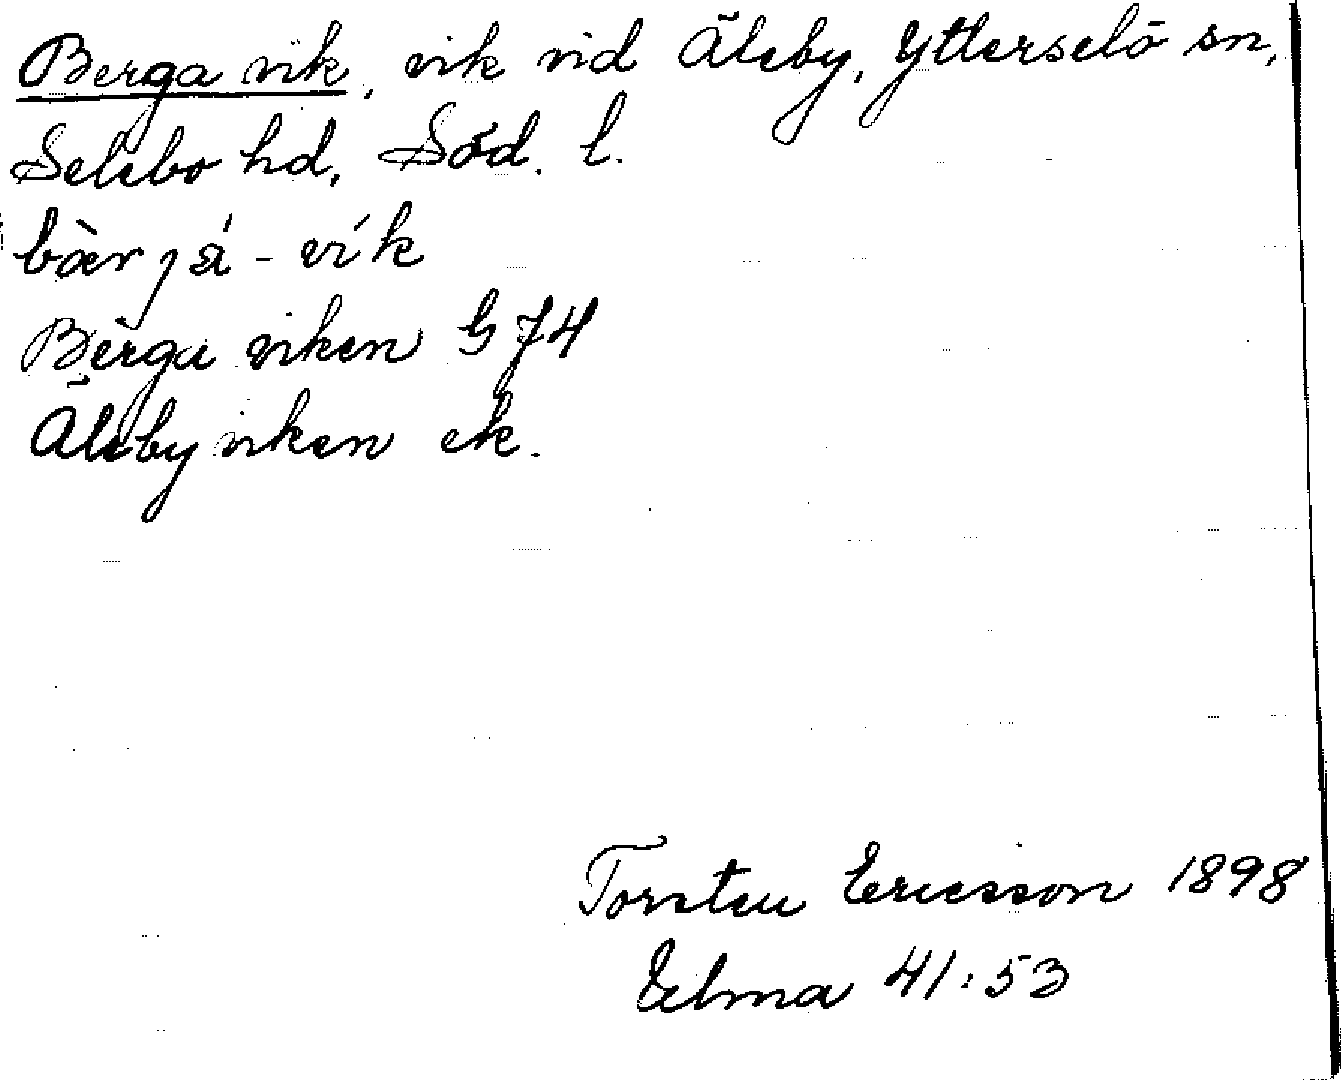 Berga vik, vik vid Äleby, Ytterselö sn,
Selebo hd, Söd. l.
bàrjá-vík
Berga viken G 74
Älebyviken ek.
Torsten Ericsson 1898
Elma 41:53